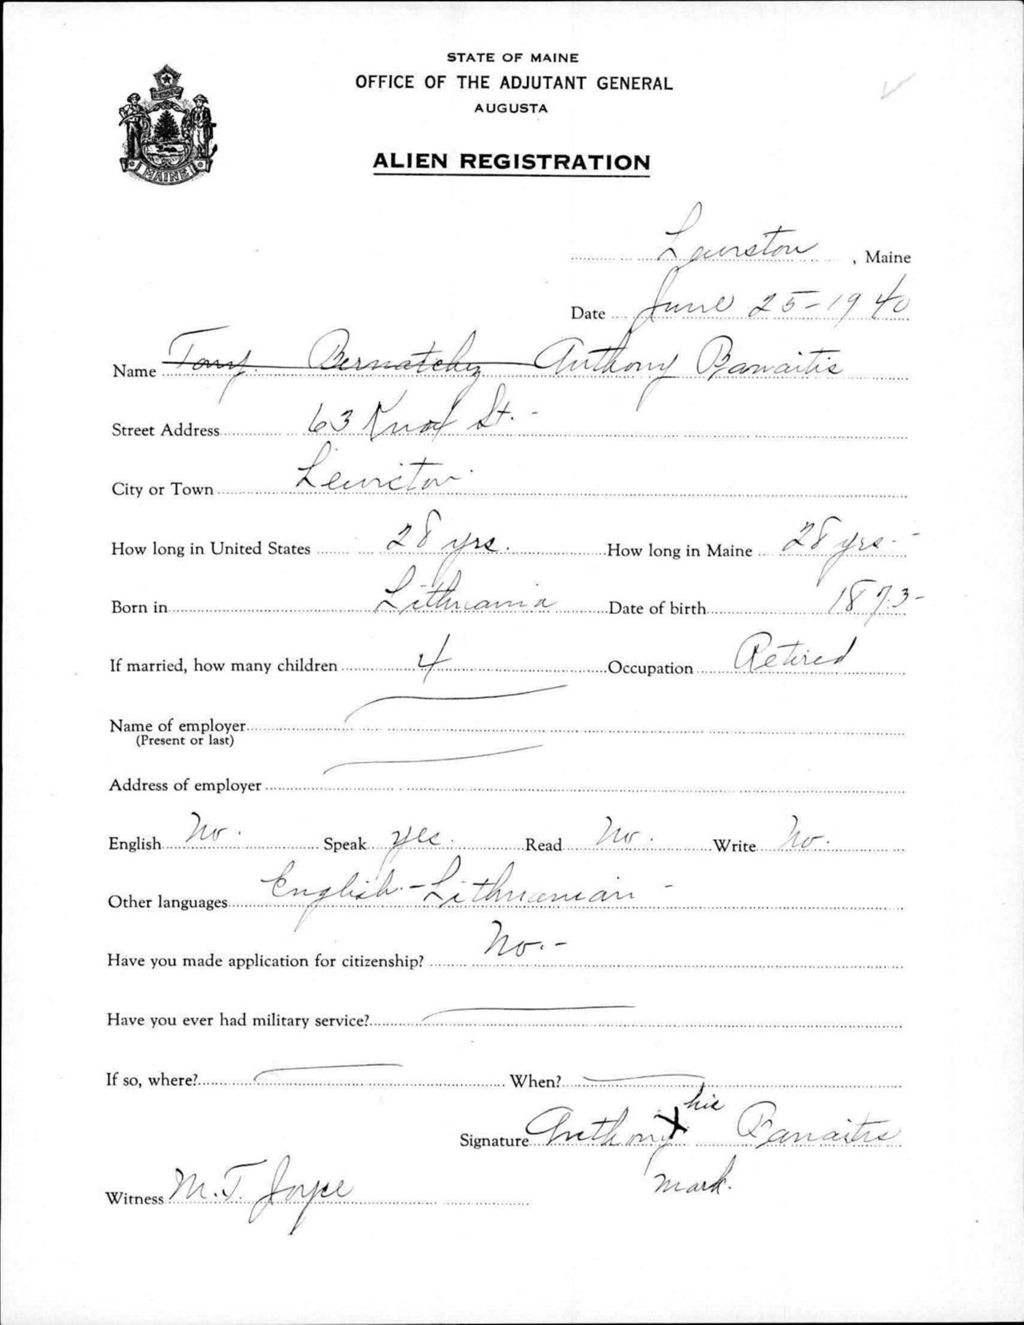 STATE OF MAINE
OFFICE OF THE ADJUTANT GENERAL
AUGUSTA
MAINE
ALIEN REGISTRATION
Lewiston, Maine
Date June 25-1940
Name Tony Bernatchez Anthony Banaitis
Street Address 63 Knox St. -
City or Town Lewiston
How long in United States 28 yrs. How long in Maine 28 yrs -
Born in Lithuania Date of birth 1873-
If married, how many children 4 Occupation Retired
Name of employer
(Present or last)
Address of employer
English No. Speak yes. Read No. Write No.
Other languages English - Lithuanian -
Have you made application for citizenship? No. -
Have you ever had military service?
If so, where? When?
Signature Anthony X his Banaitis
mark.
Witness M. T. Joyce